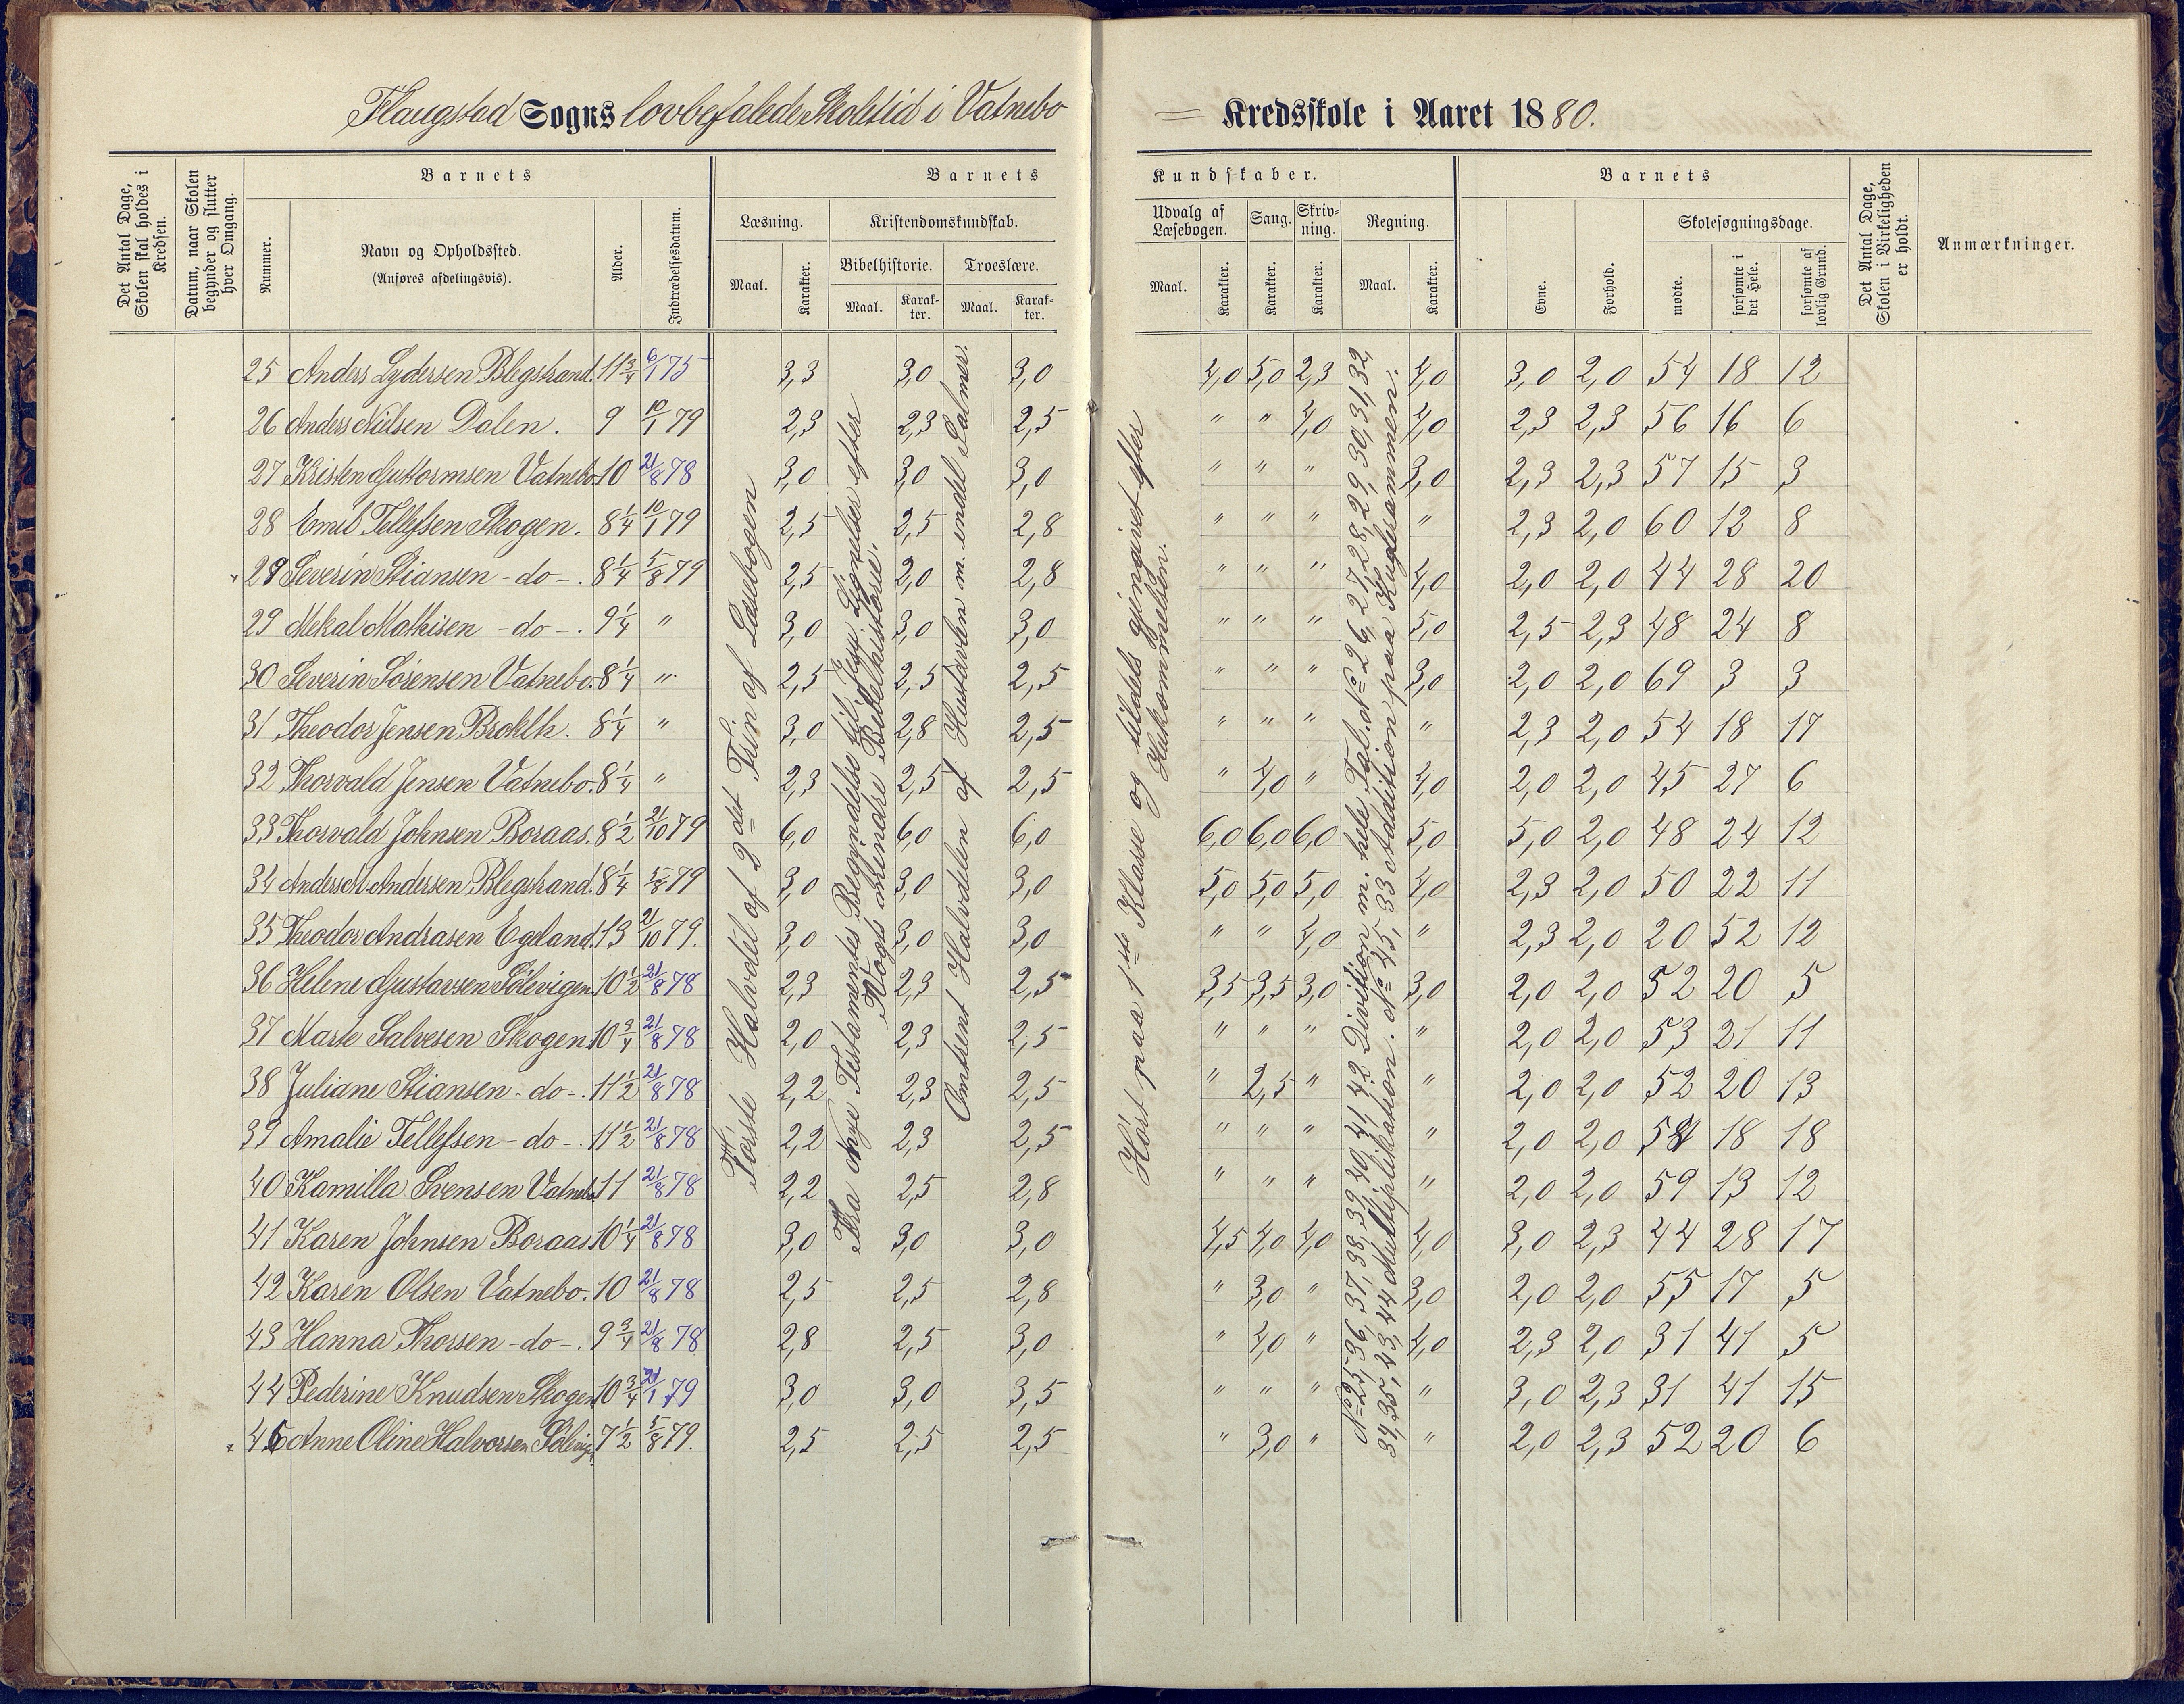 Flaugstad Sogns lovbefalede Skoletid i Vatnebo = Kredsskole i Aaret 1880.
Det Antal Dage, Skolen skal holdes i Kredsen.
Datum, naar Skolen begynder og slutter hver Omgang.
Barnets
Nummer.
Navn og Opholdssted.
(Anføres afdelingsvis).
Alder.
Indtrædelsesdatum.
Barnets
Læsning.
Maal.
Karakter.
Kristendomskundskab.
Bibelhistorie.
Maal.
Karakter.
Troeslære.
Maal.
Karakter.
Kundskaber.
Udvalg af Læsebogen.
Maal.
Karakter.
Sang.
Karakter.
Skrivning.
Karakter.
Regning.
Maal.
Karakter.
Barnets
Evne.
Forhold.
Skolesøgningsdage.
mødte.
forsømte i det Hele.
forsømte af lovlig Grund.
Det Antal Dage, Skolen i Virkeligheden er holdt.
Anmærkninger.
25 Anders Lydersen Blegstrand. 11 3/4 6/1 75 3,3 3,0 3,0 4,0 5,0 2,3 4,0 3,0 2,0 54 18 12
26 Anders Nilsen Dalen. 9 10/1 79 2,3 2,3 2,5 " " 4,0 4,0 2,3 2,3 56 16 6
27 Kristen Guttormsen Vatnebo. 10 21/8 78 3,0 3,0 3,0 " " " 3,0 2,3 2,3 57 15 3
28 Emil Tellefsen Skogen. 8 1/4 10/1 79 2,5 2,5 2,8 " " " " 2,3 2,0 60 12 8
× 28 Severin Stiansen - do - . 8 1/4 5/8 79 2,5 2,0 2,8 " " " 4,0 2,0 2,0 44 28 20
29 Mekal Mathisen - do - . 9 1/4 " 3,0 3,0 3,0 " " " 5,0 2,5 2,3 48 24 8
30 Severin Sørensen Vatnebo. 8 1/4 " 2,5 2,5 2,5 " " " 3,0 2,0 2,0 69 3 3
31 Theodor Jensen Broklh. 8 1/4 " 3,0 2,8 2,5 " " " " 2,3 2,0 54 18 17
32 Thorvald Jensen Vatnebo. 8 1/4 " 2,3 2,5 2,5 " 4,0 " 4,0 2,0 2,0 45 27 6
33 Thorvald Johnsen Boraas. 8 1/2 21/10 79 6,0 6,0 6,0 6,0 6,0 6,0 5,0 5,0 2,0 48 24 12
34 Anders A Andersen Blegstrand. 8 1/4 5/8 79 3,0 3,0 3,0 5,0 5,0 5,0 4,0 2,3 2,0 50 22 11
35 Theodor Andrasen Egeland. 13 21/10 79. 3,0 3,0 3,0 " " 4,0 " 2,3 2,0 20 52 12
36 Helene Gustavsen Sølevigen 10 1/2 21/8 78 2,3 2,3 2,5 3,5 3,5 3,0 3,0 2,0 2,0 52 20 5
37 Marte Salvesen Skogen. 10 3/4 21/8 78 2,0 2,3 2,5 " " " " 2,0 2,0 53 21 11
38 Juliane Stiansen - do - . 11 1/2 21/8 78 2,2 2,3 2,5 " 2,5 " " 2,0 2,0 52 20 13
39 Amalie Tellefsen - do - . 11 1/2 21/8 78 2,2 2,3 2,5 " " " " 2,0 2,0 54 18 18
40 Kamilla Svensen Vatnebo 11 21/8 78 2,2 2,5 2,8 " " " " 2,0 2,0 59 13 12
41 Karen Johnsen Boraas. 10 1/4 21/8 78 3,0 3,0 3,0 4,5 4,0 4,0 4,0 3,0 2,3 44 28 17
42 Karen Olsen Vatnebo. 10 21/8 78 2,5 2,5 2,8 " 3,0 " 3,0 2,0 2,0 55 17 5
43 Hanna Thorsen - do - . 9 3/4 21/8 78 2,8 2,5 3,0 " 4,0 " 4,0 2,3 2,0 31 41 5
44 Pederine Knudsen Skogen 10 3/4 21/1 79 3,0 3,0 3,5 " " " " 3,0 2,3 31 41 15
× 45 Anne Oline Halvorsen Sølevigen 7 1/2 5/8 79. 2,5 2,5 2,5 " 3,0 " " 2,0 2,3 52 20 6
Første Halvdel af 2det Trin af Læsebogen
Fra nye Testamentes Begyndelse til Jesu Lignelser efter
Vogts mindre Bibelhistorie.
Omtrent Halvdelen af Hustavlen m. endel Salmer.
Hørt paa 1ste Klasse og tildels gjengivet efter
Hukommelsen.
No 25, 36, 37, 38, 39, 40, 41, 42 Divition m. hele Tal. No 26, 27, 28, 29, 30, 31, 32,
34, 35, 43, 44 Multiplikation. No 45, 33 Addition paa Kuglerammen.